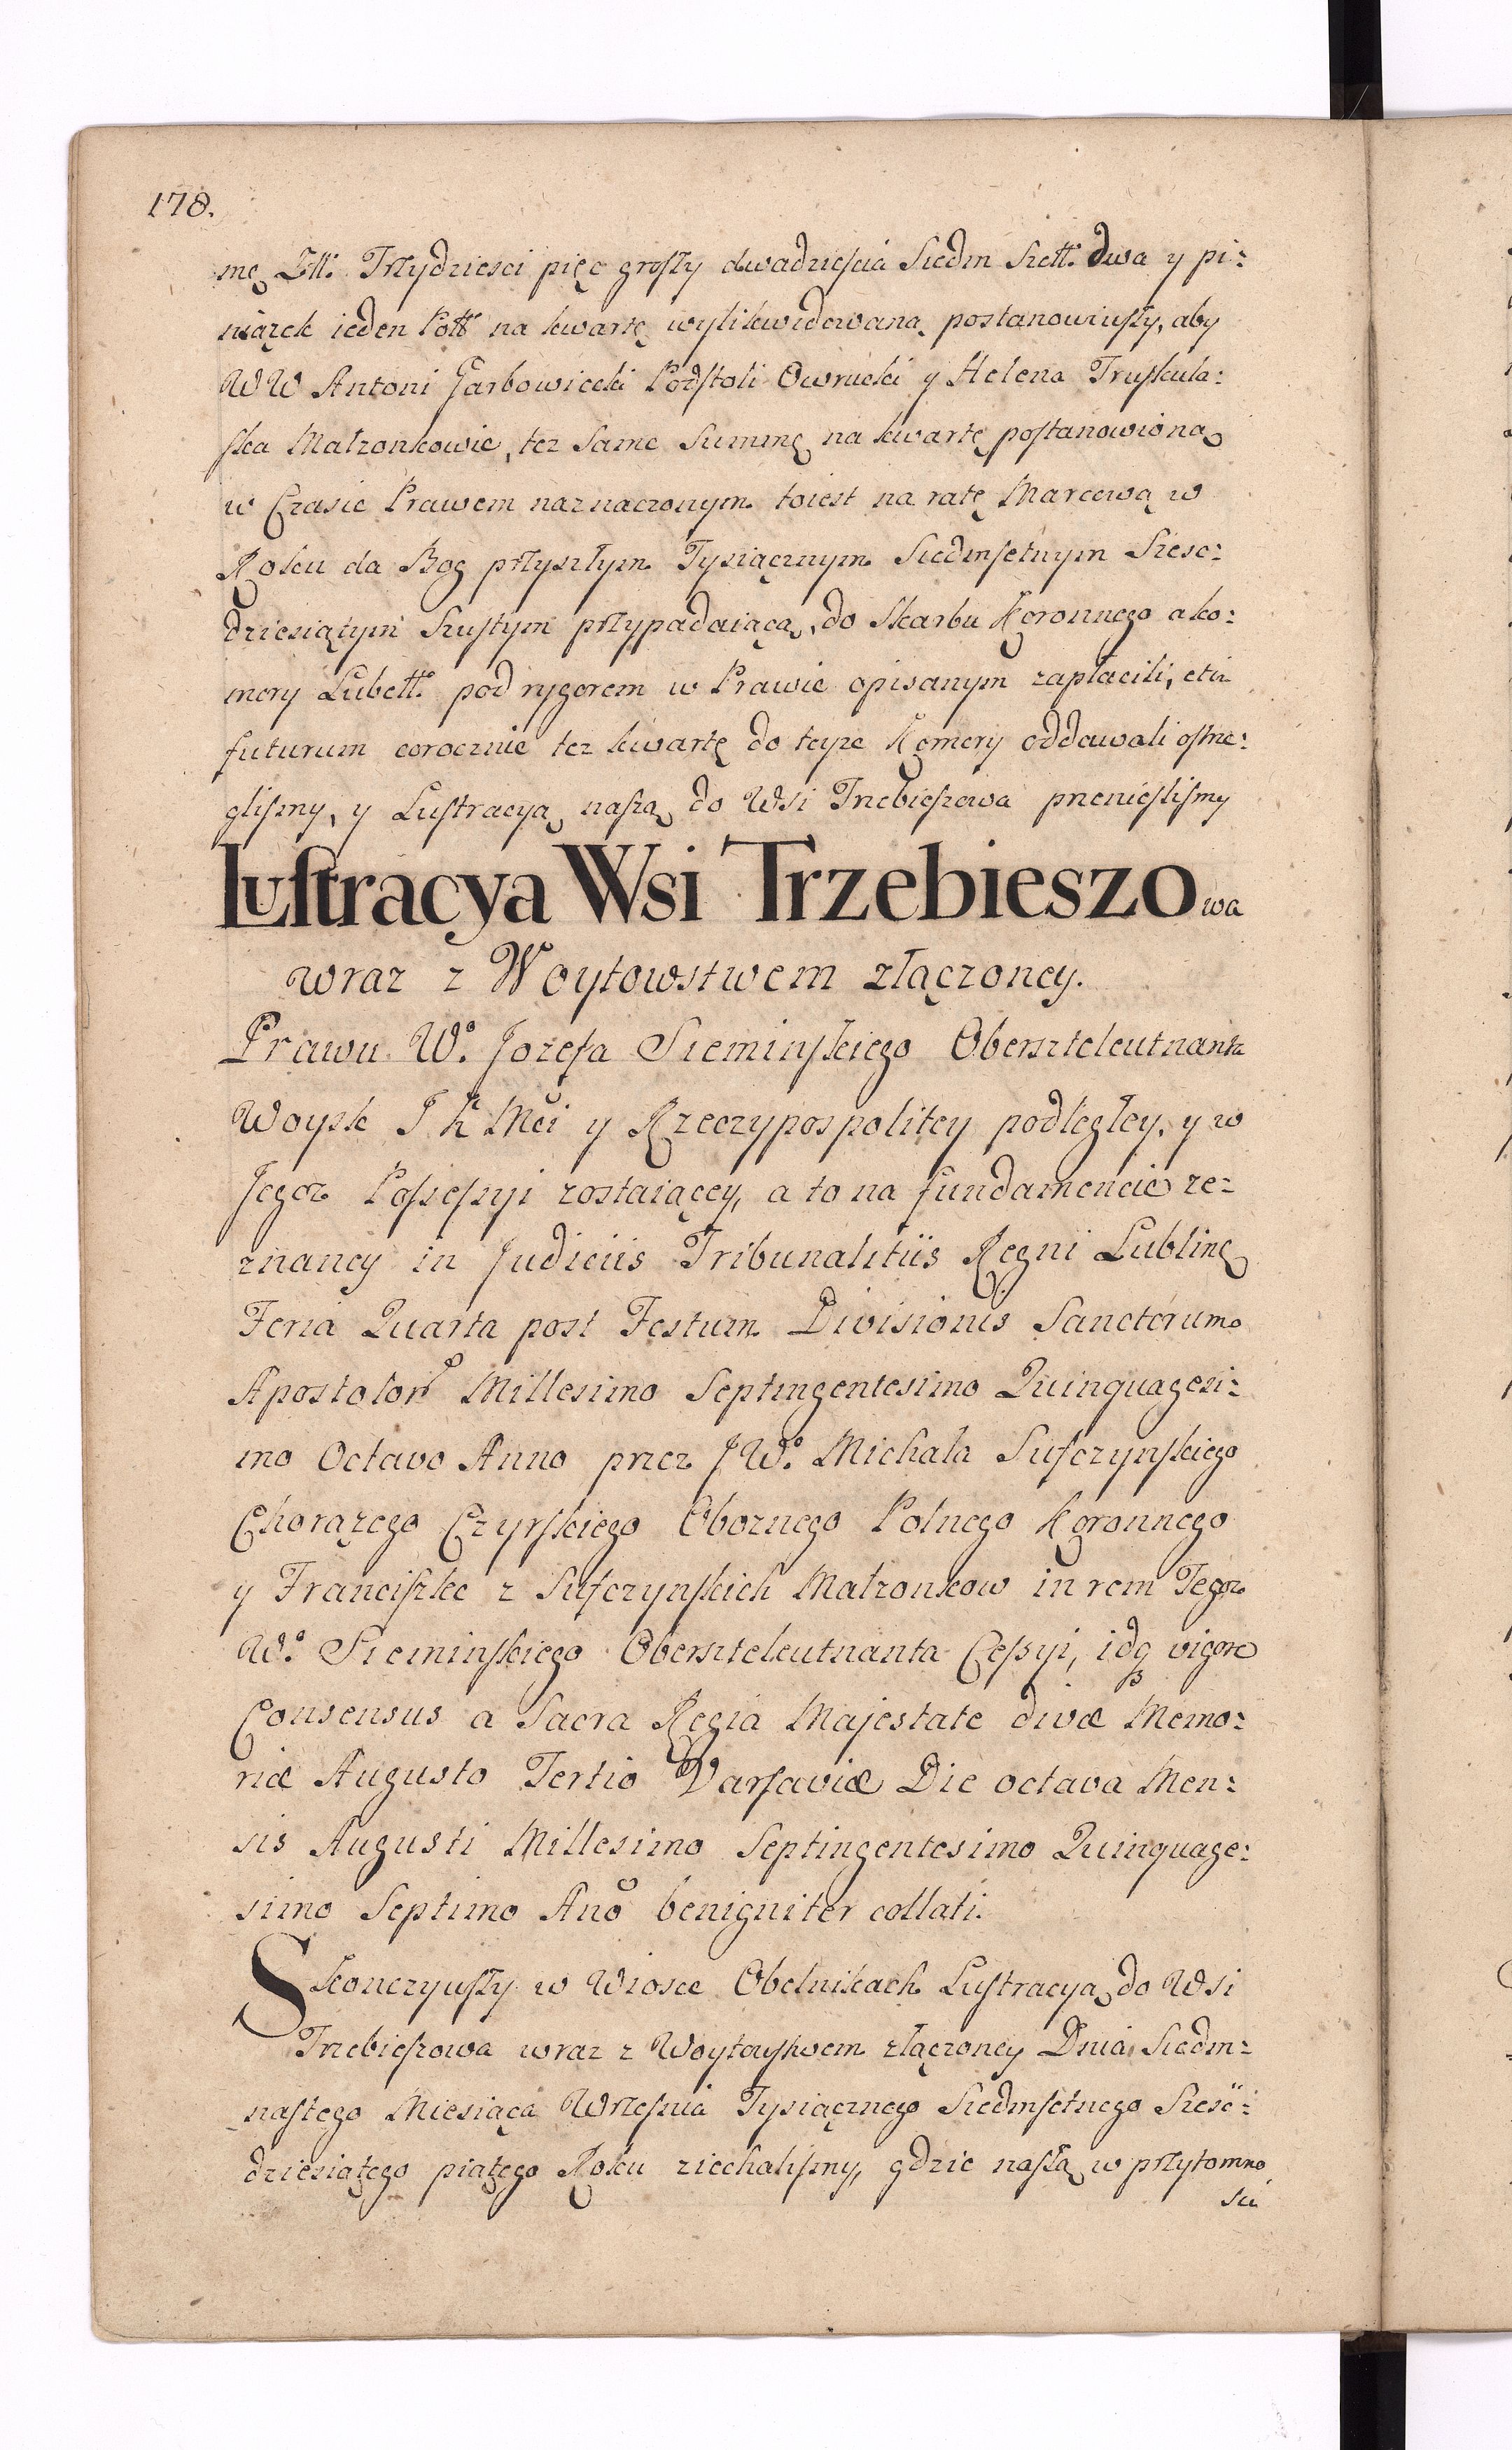 178.
mę Złł. Trzydziesci pięc groszy dwadziescia Siedm Szełł. dwa y pi:
niązek ieden Połł na kwartę wylikwidowaną postanowiwszy, aby
WW Antoni Garbowiecki Podstoli Owrucki y Helena Truskula:
ska Małzonkowie, tez Same Summę na kwartę postanowioną
w Czasie Prawem naznaczonym toiest na ratę Marcową w
Roku da Bog przyszłym Tysiącznym Siedmsetnym Szesc:
dziesiątym Szustym przypadaiącą, do Skarbu Koronnego a ko:
mory Lubełł. pod rygorem w Prawie opisanym zapłacili, et in
futurum corocznie tez kwartę do teyze Komory oddawali ostrze:
glismy, y Lustracyą naszą do Wsi Trzebieszowa przenieslismy
Lustracya Wsi Trzebieszowa
wraz z Woytowstwem złączoney.
Prawu W.o Jozefa Siemińskiego Oberszteleutnanta
Woysk J K Mci y Rzeczypospolitey podległey, y w
Jegoz Possessyi zostaiącey, a to na fundamencie ze:
znaney in Judiciis Tribunalitiis Regni Lublinę
Feria Quarta post Festum Divisionis Sanctorum
Apostolor Millesimo Septingentesimo Quinquagesi:
mo Octavo Anno przez JW.o Michała Sufczynskiego
Chorązego Czyrskiego Oboznego Polnego Koronnego
y Franciszke z Sufczynskich Małzonkow in rem Tegoz
W.o Siemińskiego Oberszteleutnanta Cessyi, idq vigore
Consensus a Sacra Regia Majestate divæ Memo:
riæ Augusto Tertio Varsaviæ Die octava Men:
sis Augusti Millesimo Septingentesimo Quinquage:
simo Septimo Ano benigniter collati.
Skonczywszy w Wiosce Obelnikach Lustracyą do Wsi
Trzebieszowa wraz z Woytowstwem złączoney Dnia Siedm:
nastego Miesiąca Wrzesnia Tysiącznego Siedmsetnego Szesć:
dziesiątego piątego Roku ziechalismy, gdzie naszą w przytomno
sci